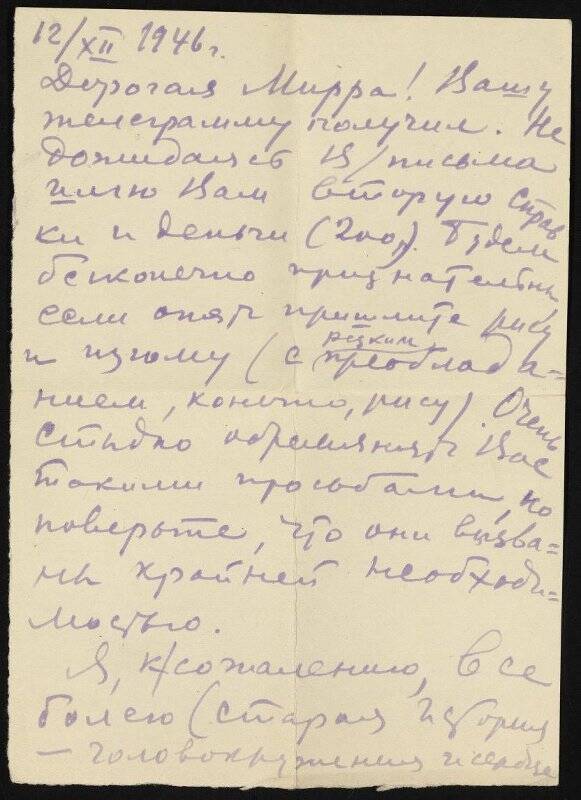 12/XII 1946 г.
Дорогая Мирра! Вашу
телеграмму получил. Не
дожидаясь В/письма
шлю Вам вторую справ
ки и деньги (200 р). Будем
бесконечно признательны
если опять пришлете рису
и изюму (с резким преоблада-
нием, конечно, рису). Очень
стыдно обременять Вас
такими просьбами, но
поверьте, что они вызва=
ны крайней необходи=
мостью.
Я, к/сожалению, все
болею (старая история
— головокружения и сердце